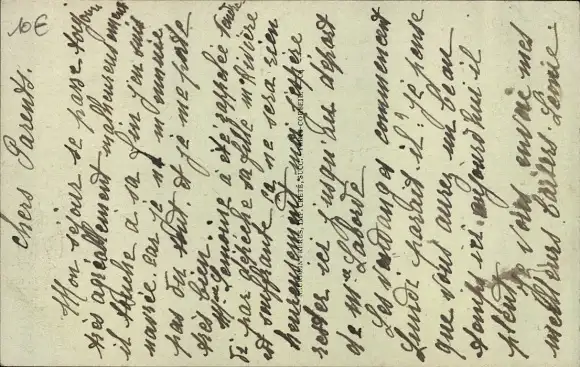 10€
Chers Parents.
Mon séjour se passe toujours
très agréablement malheureusement
il touche à sa fin j'en suis
navrée car je ne m'ennuie
pas du tout et je me porte
très bien.
Mme a été rappelée
par dépêche sa fille
est souffrante ce ne sera rien
heureusement moi j'espère
rester ici jusqu'au départ
de Mr Laborde
Les vendanges commencent
Lundi parait il, je pense
que vous aurez un beau
temps ici aujourd'hui il
pleut. Je vous envoie mes
meilleurs baisers.